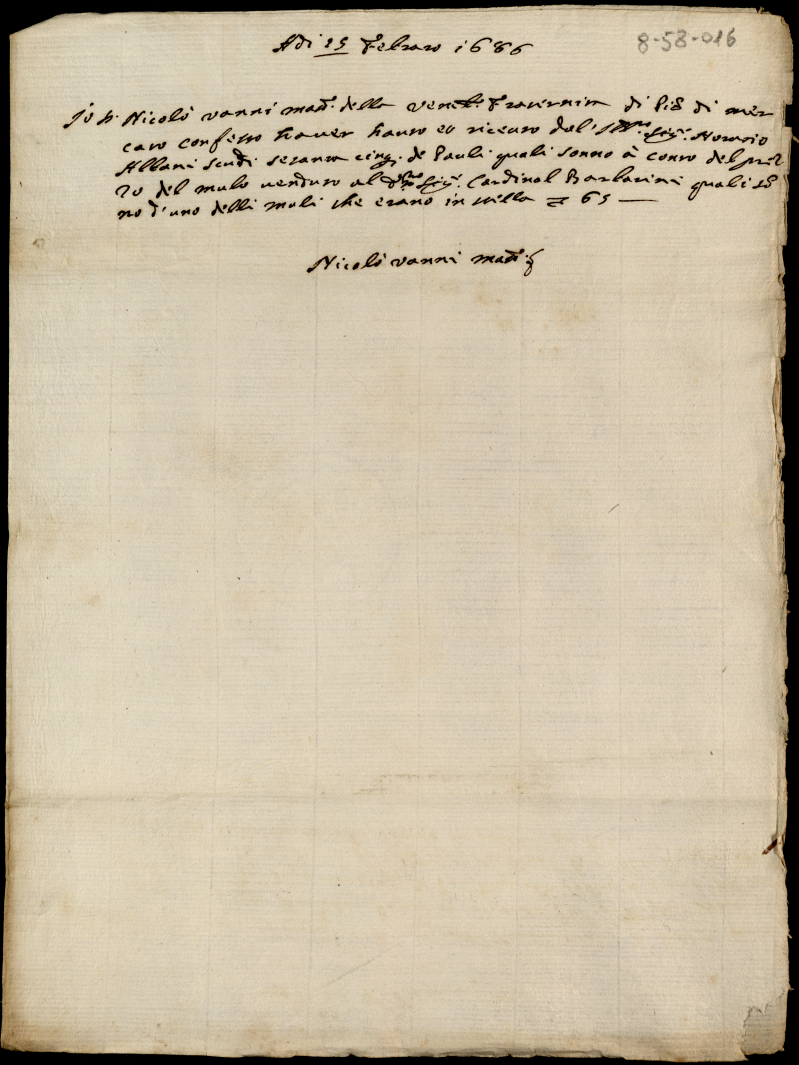 Adi 25 Febraro 1686
8-58-016
Io D. Nicolò Vanni mand. della Vener. Fraternita di Piè di mer
cato confesso haver hauto et riceuto dal' Ill.mo Sig.r Horatio
Albani scudi sesanta cinq. de Pauli quali sonno à conto del prez
zo del mulo venduto al d.mo Sig.r Cardinal Barbarini quali so
no d'uno delli muli che erano in villa = 65 —
Nicolò Vanni mand.